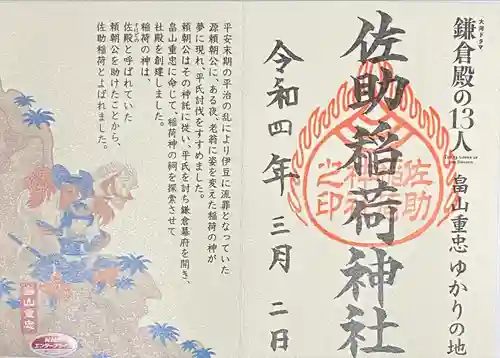 大河ドラマ
鎌倉殿の13人 畠山重忠 ゆかりの地
佐助稲荷神社
佐助稲荷神社之印
令和四年 三月 二日
平安末期の平治の乱により伊豆に流罪となっていた
源頼朝公に、ある夜、老翁に姿を変えた稲荷の神が
夢に現れ、平氏討伐をすすめました。
頼朝公はその神託に従い、平氏を討ち鎌倉幕府を開き、
畠山重忠に命じて、稲荷神の祠を探索させて
社殿を創建しました。
稲荷の神は、
佐殿と呼ばれていた
頼朝公を助けたことから、
佐助稲荷とよばれました。
畠山重忠
NHK
エンタープライズ